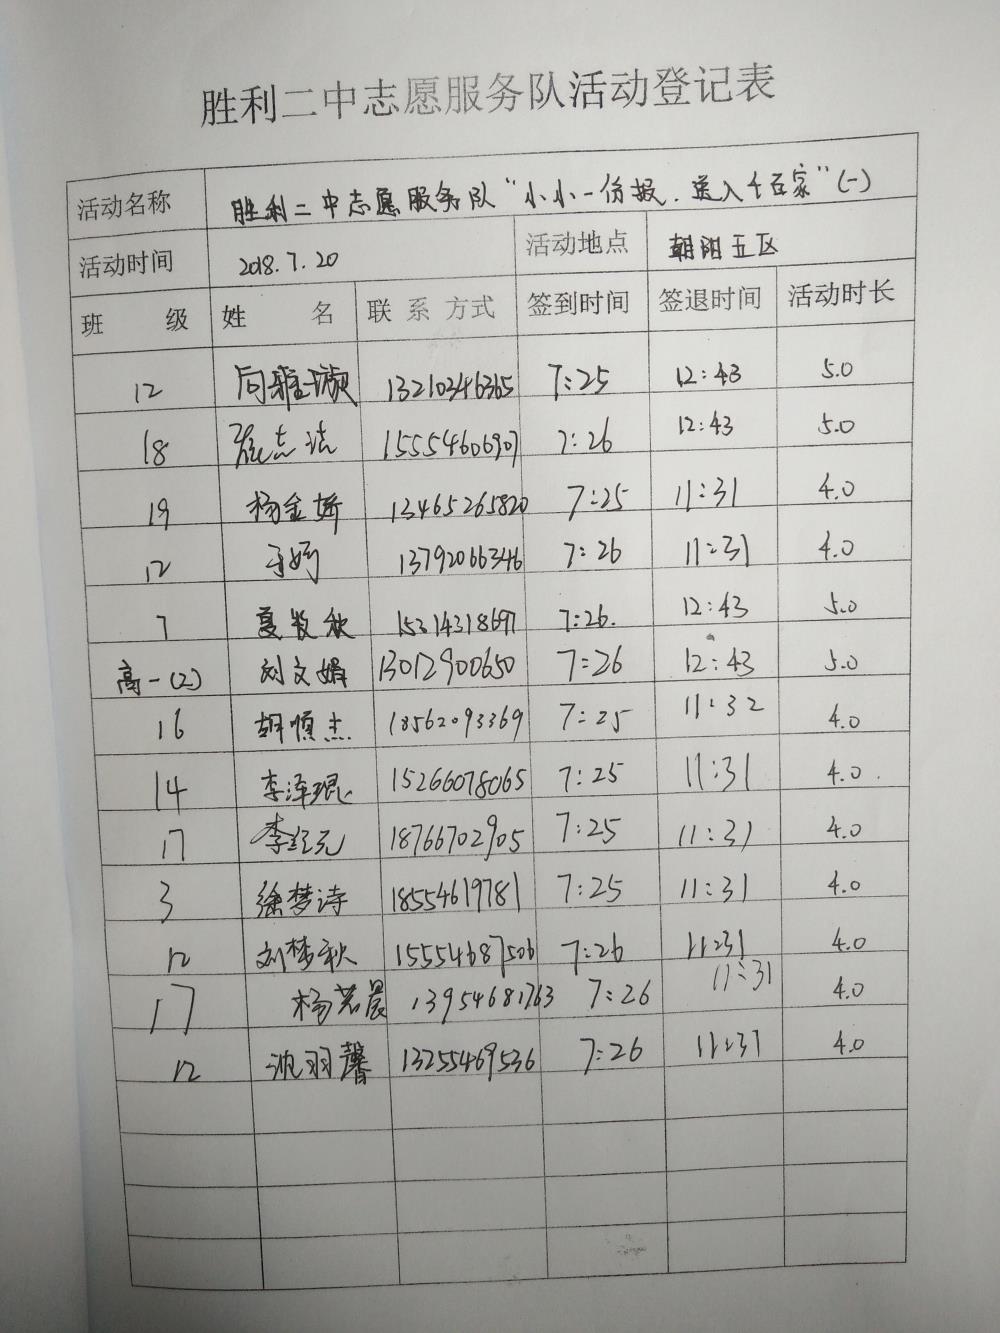 胜利二中志愿服务队活动登记表
活动名称 胜利二中志愿服务队“小小一份报.送入千百家”(一)
活动时间 2018.7.20 活动地点 朝阳五区
班 级 姓 名 联系方式 签到时间 签退时间 活动时长
12 向雅璇 13210346365 7:25 12:43 5.0
18 志洁 15554606907 7:26 12:43 5.0
19 杨金娇 13465265820 7:25 11:31 4.0
12 于婷 13792066346 7:26 11:31 4.0
7 夏牧秋 15314318697 7:26. 12:43 5.0
高一(2) 刘文娟 13012900650 7:26 12:43 5.0
16 胡顺杰 18562093369 7:25 11:32 4.0
14 李泽琨 15266078065 7:25 11:31 4.0
17 李元 18766702905 7:25 11:31 4.0
3 徐梦诗 18554619781 7:25 11:31 4.0
12 刘梦秋 15554687506 7:26 11:31 4.0
17 杨若晨 13954681763 7:26 11:31 4.0
12 沈羽馨 13255469536 7:26 11:31 4.0